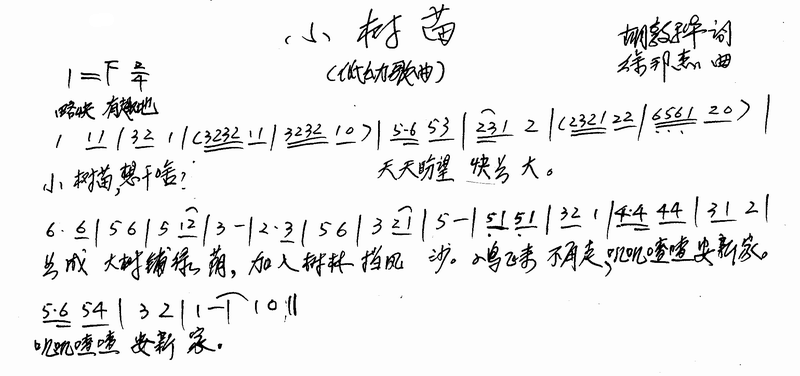 小树苗
(低幼歌曲)
胡敦骅词
徐邦杰曲
1=F 2/4
略快 有趣地
1 11 | 32 1 | (3232 11 | 3232 10) | 5·6 53 | 231 2 | (2321 22 | 6561 20) |
小树苗,想干啥? 天天盼望 快长大。
6· 6 | 56 | 5 12 | 3 - | 2·3 | 56 | 3 21 | 5 - | 51 51 | 32 1 | 4·4 44 | 31 2 |
长成 大树铺绿荫, 加入树林挡风 沙。鸟飞来 不再走,叽叽喳喳安新家。
5·6 54 | 3 2 | 1 - | 1 0 ‖
叽叽喳喳 安新 家。